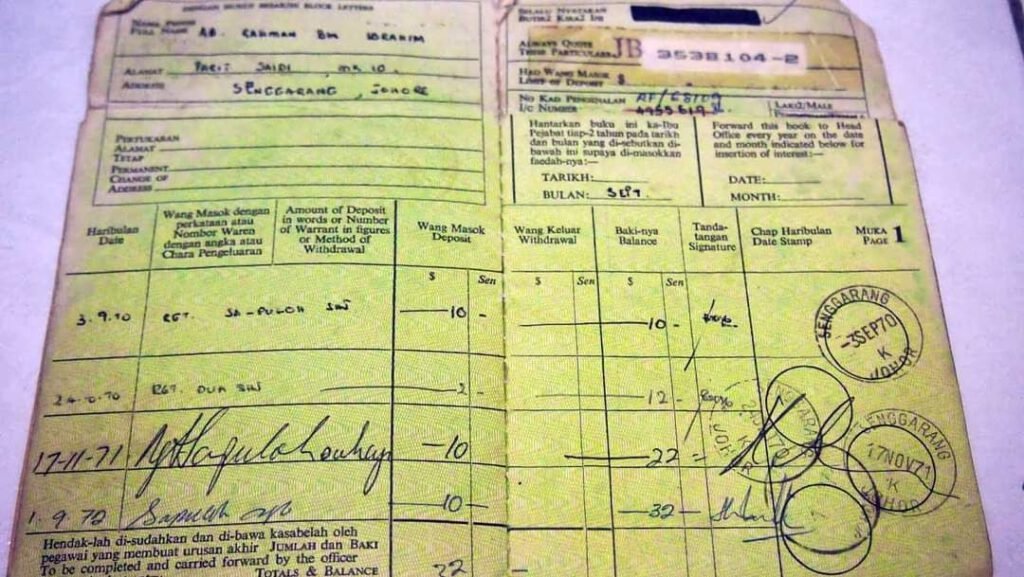 DENGAN HURUF BESAR IN BLOCK LETTERS
NAMA PENOH
FULL NAME AB. RAHMAN BIN IBRAHIM
ALAMAT PARIT SAIDI, MK 10.
ADDRESS SENGGARANG, JOHORE
PERTUKARAN
ALAMAT
TETAP
PERMANENT
CHANGE OF
ADDRESS
SELALU NYATAKAN
BUTIR2 KIRA2 INI
ALWAYS QUOTE
THESE PARTICULARS
JB 3538104-2
HAD WANG MASOK
LIMIT OF DEPOSIT $
NO KAD PENGENALAN
I/C NUMBER
LAKI2/MALE
Hantarkan buku ini ka-Ibu
Pejabat tiap-2 tahun pada tarikh
dan bulan yang di-sebutkan di-
bawah ini supaya di-masokkan
faedah-nya:—
TARIKH:
BULAN: SEPT.
Forward this book to Head
Office every year on the date
and month indicated below for
insertion of interest:—
DATE:
MONTH:
Haribulan
Date
Wang Masok dengan
perkataan atau
Nombor Waren
dengan angka atau
Chara Pengeluaran
Amount of Deposit
in words or Number
of Warrant in figures
or Method of
Withdrawal
Wang Masok
Deposit
Wang Keluar
Withdrawal
Baki-nya
Balance
Tanda-
tangan
Signature
Chap Haribulan
Date Stamp
MUKA
PAGE 1
$ Sen $ Sen $ Sen
3.9.70 RGT. SA-PULOH SHJ 10 - 10 -
SENGGARANG
-3SEP70
K
JOHOR
RGT. DUA SHJ 2 12 -
17-11-71 10 22
SENGGARANG
17NOV71
K
JOHOR
1.9.72 Sapuloh 10 - 32
Hendak-lah di-sudahkan dan di-bawa kasabelah oleh
pegawai yang membuat urusan akhir JUMLAH dan BAKI
To be completed and carried forward by the officer
TOTALS & BALANCE